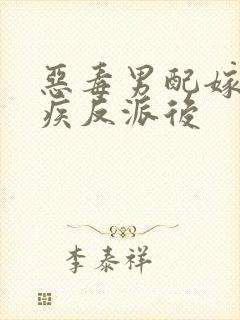 惡毒男配嫁
疾反派後
李泰祥